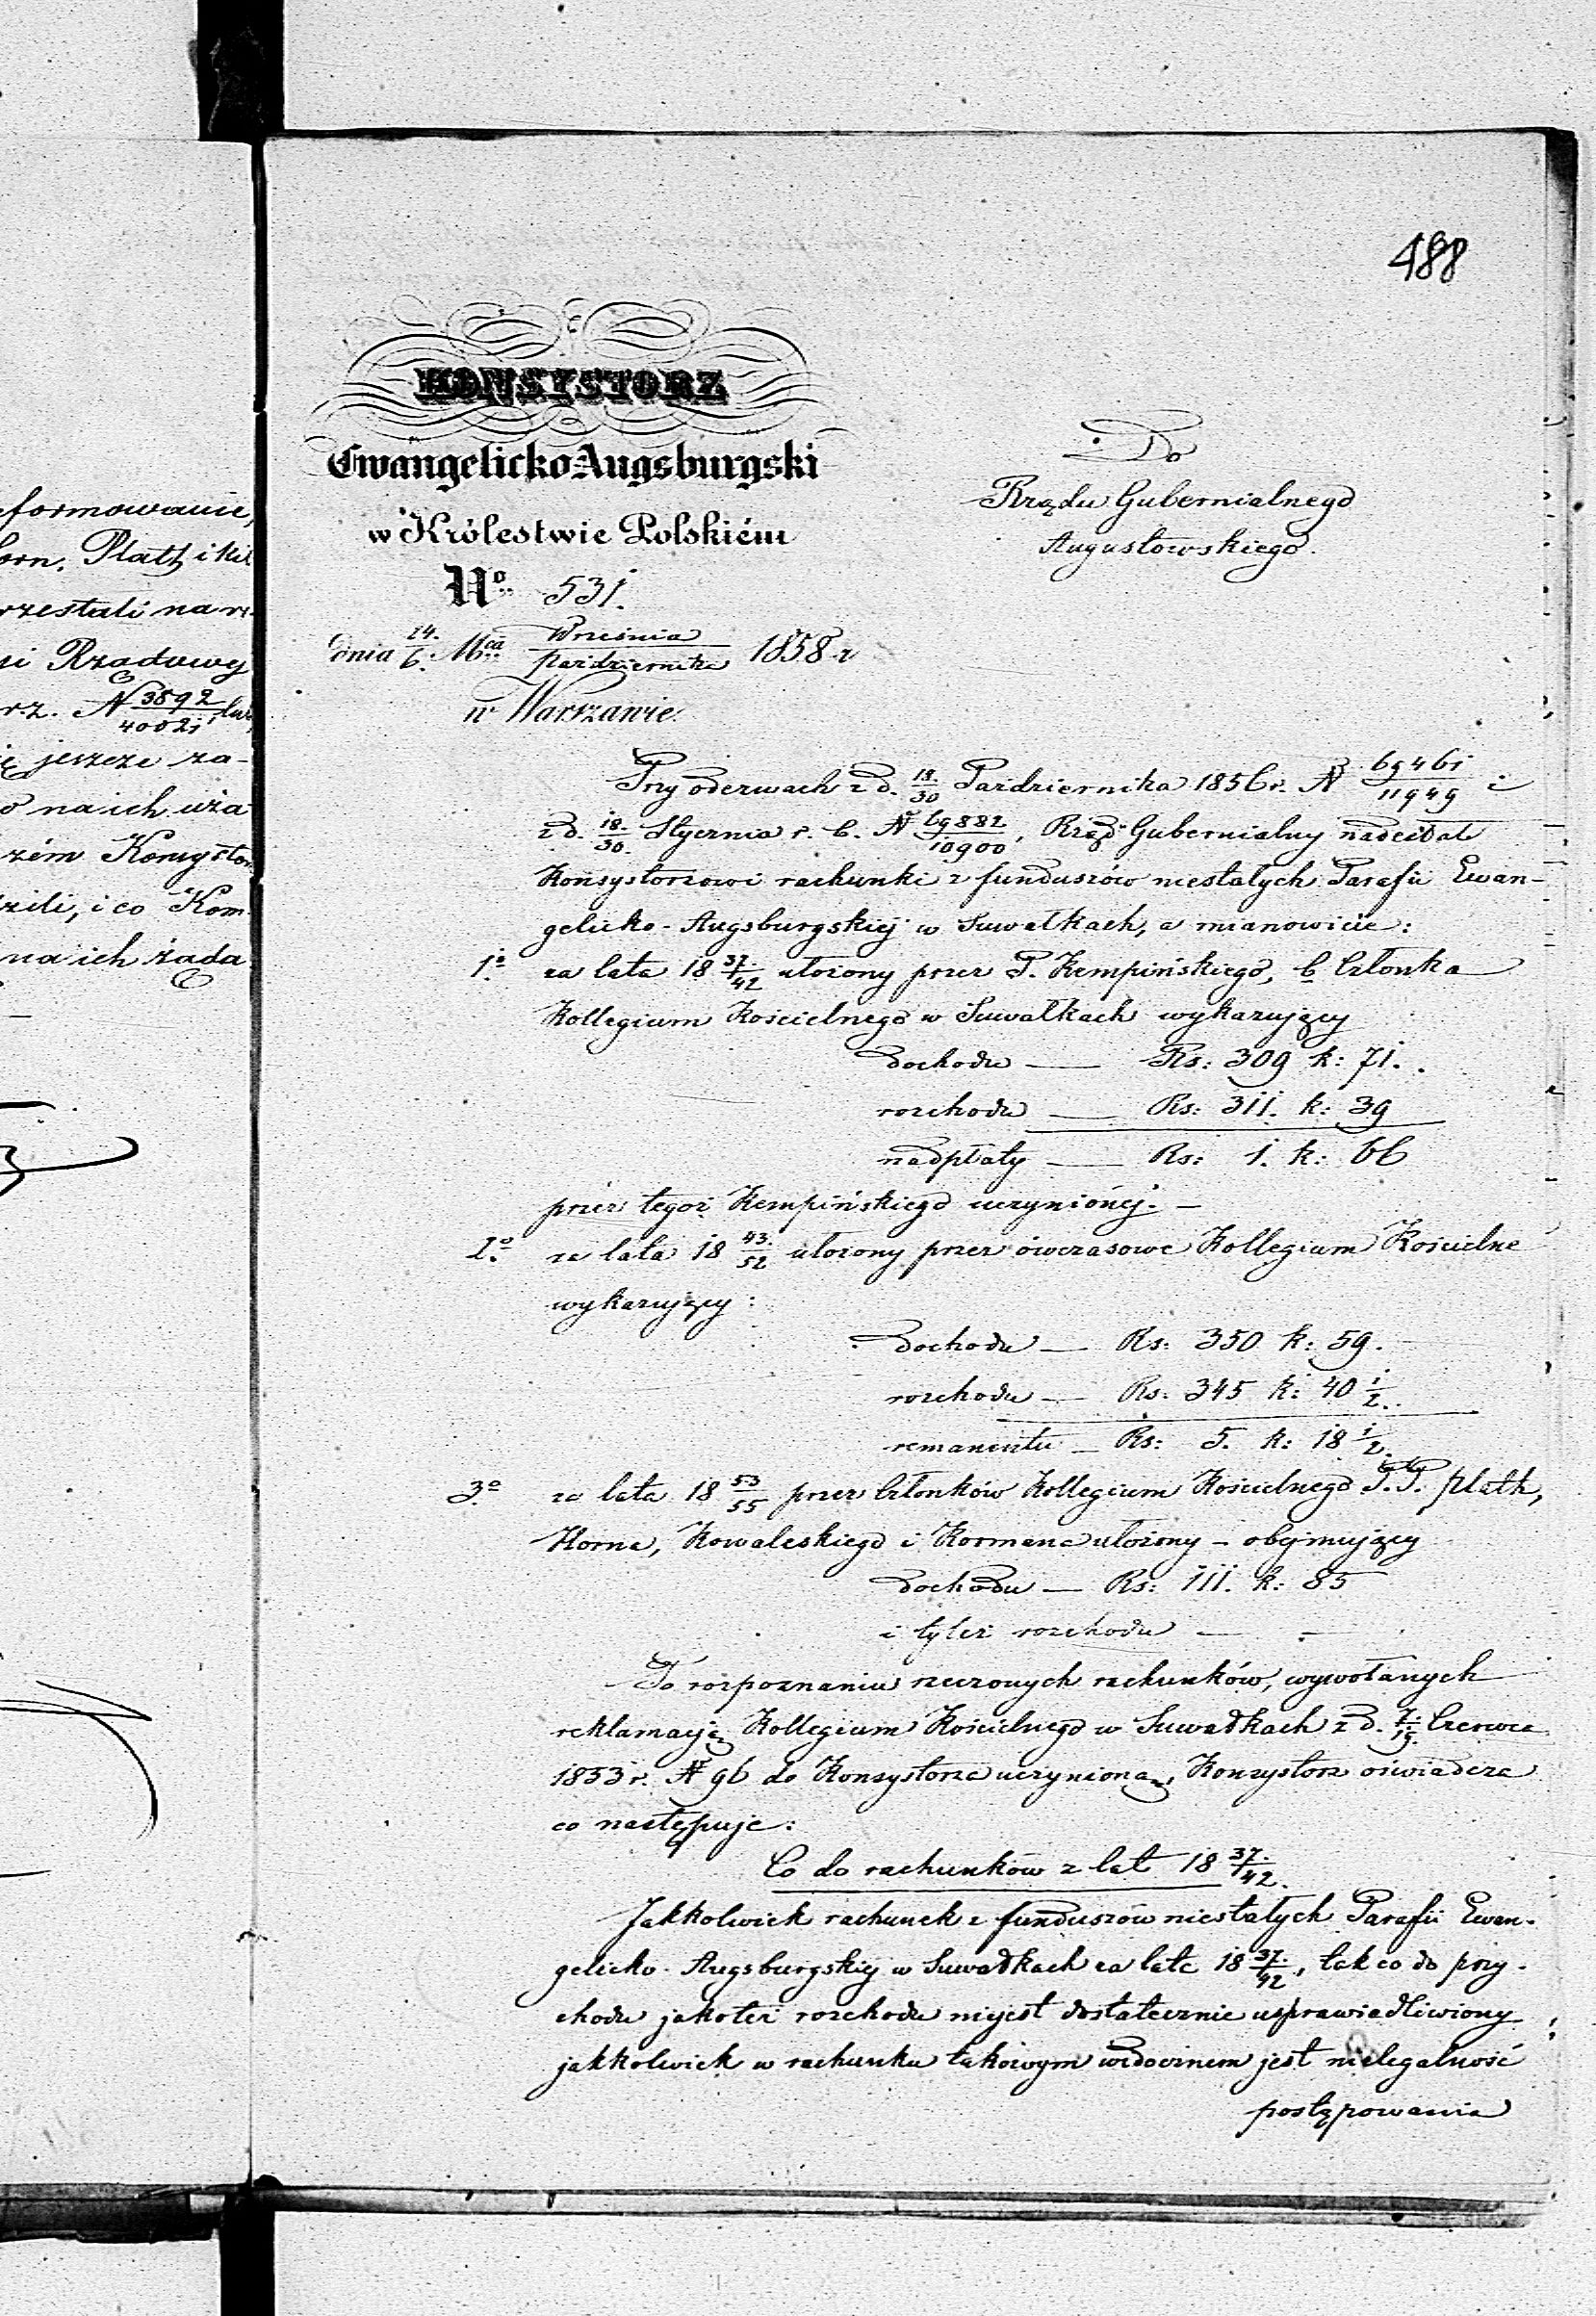 eformowanie,
orn. Platz i kil
rzestali na r
si Rządowy
r.z. N 3892/40021
ę jeszcze za-
o na ich uża
zém Konsystor
zili, i co Kom
na ich żąda
488
KONSYSTORZ
Ewangelicko-Augsburgski
w Królestwie Polskiém
No 531.
dnia 24./6. Mca Września/Października 1858 r
w Warszawie.
Do
Rządu Gubernialnego
Augustowskiego.
Przy odezwach z d. 18./30 Października 1856 r. N 69461/11949 i
z d. 18./30. Stycznia r. b. N 69882/10900, Rząd Gubernialny nadesłał
Konsystorzowi rachunki z funduszów niestałych Parafii Ewan-
gelicko-Augsburgskiej w Suwałkach, a mianowicie:
1o za lata 18 37./42 ułożony przez P. Kempińskiego, b Członka
Kollegium Kościelnego w Suwałkach wykazujący
dochodu — Rs: 309 k: 71.
rozchodu — Rs: 311. k: 39
nadpłaty — Rs: 1. k: 66
przez tegoż Kempińskiego uczynionéj. —
2o za lata 18 43./52 ułożony przez ówczasowe Kollegium Kościelne
wykazujący:
dochodu — Rs: 350 k: 59.
rozchodu — Rs: 345 k: 40 1/2.
remanentu — Rs: 5. k: 18 1/2.
3o za lata 18 53/55 przez Członków Kollegium Kościelnego P.P. Platk,
Horna, Kowaleskiego i Kormana ułożony – obejmujący
dochodu — Rs: 111. k: 85
i tyleż rozchodu — —
Po rozpoznaniu rzeczonych rachunków, wywołanych
reklamacją Kollegium Kościelnego w Suwałkach z d. 7./19. Czerwca
1853 r. N 96 do Konsystorza uczynioną, Konsystorz oświadcza
co następuje:
Co do rachunków z lat 18 37./42.
Jakkolwiek rachunek z funduszów niestałych Parafii Ewan-
gelicko-Augsburgskiej w Suwałkach za lata 18 37./42, tak co do przy-
chodu jakoteż rozchodu niejest dostatecznie usprawiedliwiony
jakkolwiek w rachunku takowym widocznem jest nielegalność
postępowania